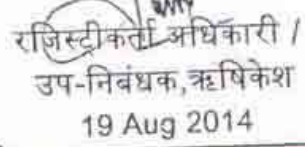 रजिस्ट्रीकर्ता अधिकारी /
उप-निबंधक,ऋषिकेश
19 Aug 2014